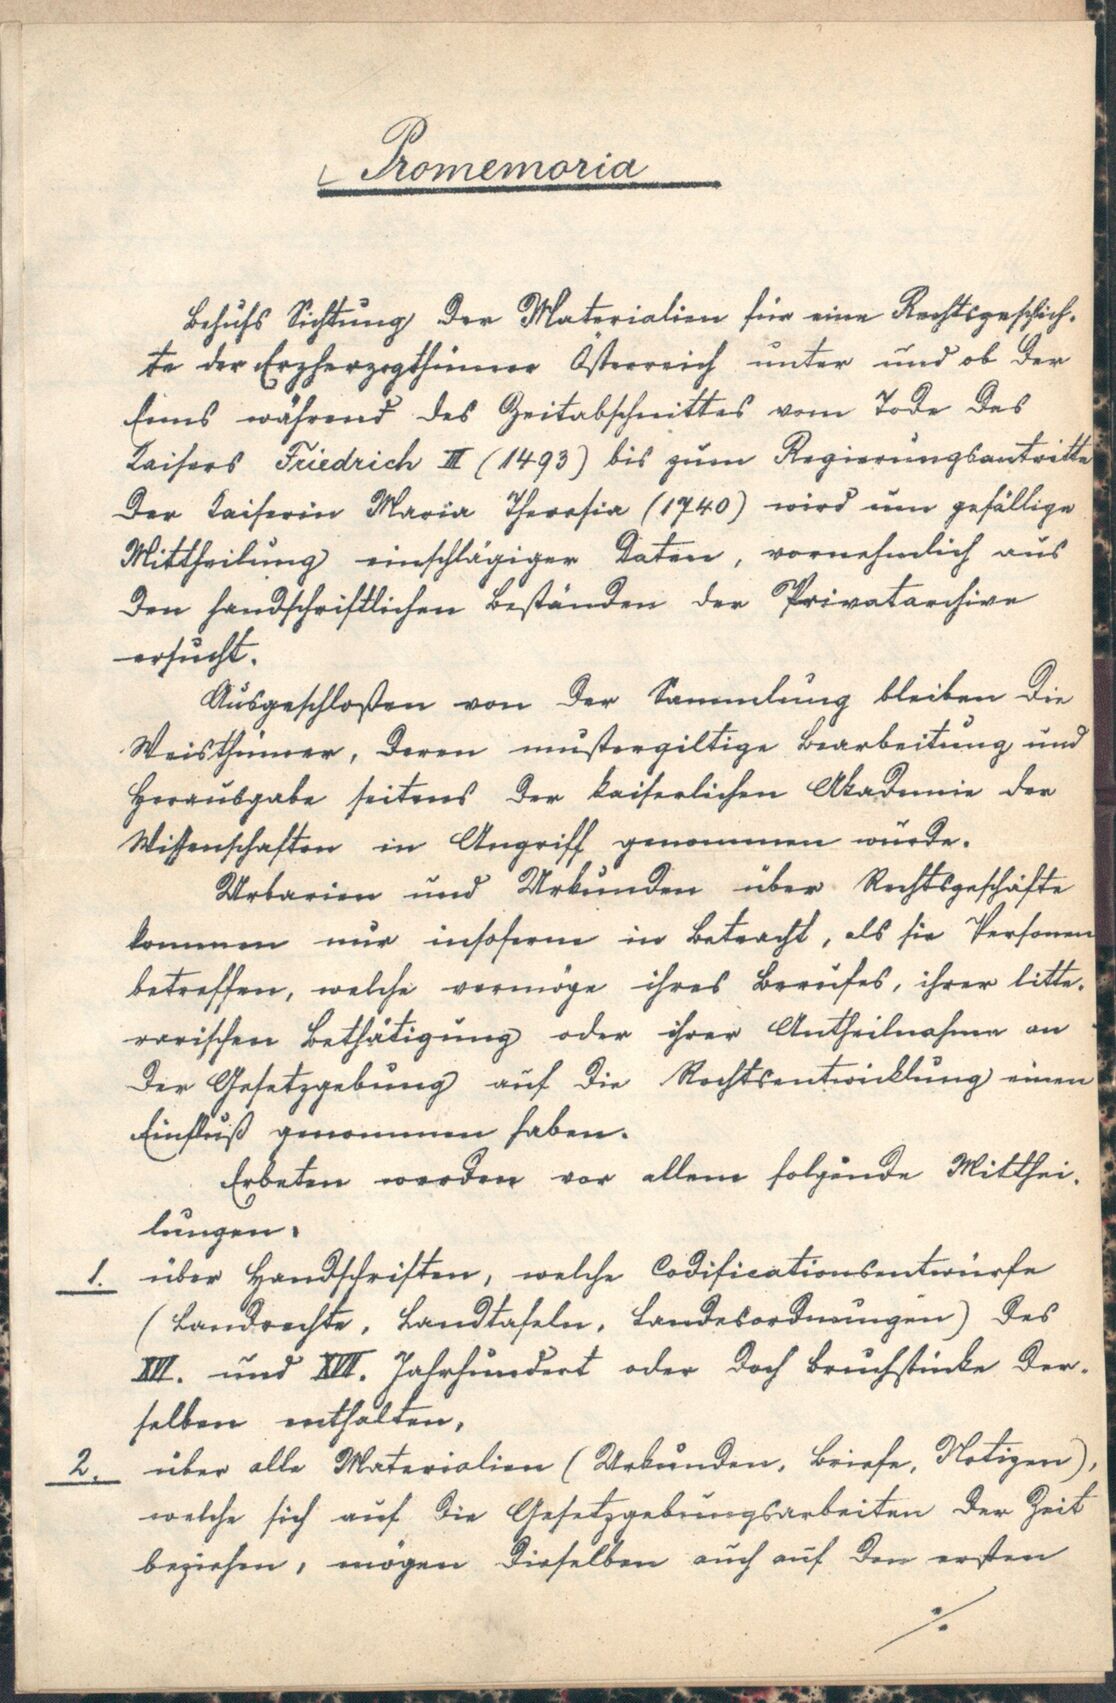 Promemoria
Behufs Sichtung der Materialien für eine Rechtsgeschich-
te der Erzherzogthümer Österreich unter und ob der
Enns während des Zeitabschnittes vom Tode des
Kaisers Friedrich III (1493) bis zum Regierungsantritte
der Kaiserin Maria Theresia (1740) wird um gefällige
Mittheilung einschlägiger Daten, vornehmlich aus
den handschriftlichen Beständen der Privatarchive
ersucht.
Ausgeschloßen von der Sammlung bleiben die
Weisthümer, deren mustergiltige Bearbeitung und
Herausgabe seitens der kaiserlichen Akademie der
Wissenschaften in Angriff genommen wurde.
Urbarien und Urkunden über Rechtsgeschäfte
kommen nur insoferne in Betracht, als sie Personen
betreffen, welche vermöge ihres Berufes, ihrer litte-
rarischen Bethätigung oder ihrer Antheilnahme an
der Gesetzgebung auf die Rechtsentwicklung einen
Einfluß genommen haben.
Erbeten werden vor allem folgende Mitthei-
lungen.
1. über Handschriften, welche Codificationsentwürfe
(Landrechte, Landtafeln, Landesordnungen) des
XVI. und XVII. Jahrhundert oder doch Bruchstücke der-
selben enthalten,
2. über alle Materialien (Urkunden, Briefe, Notizen),
welche sich auf die Gesetzgebungsarbeiten der Zeit
beziehen, mögen dieselben auch auf den ersten
./.